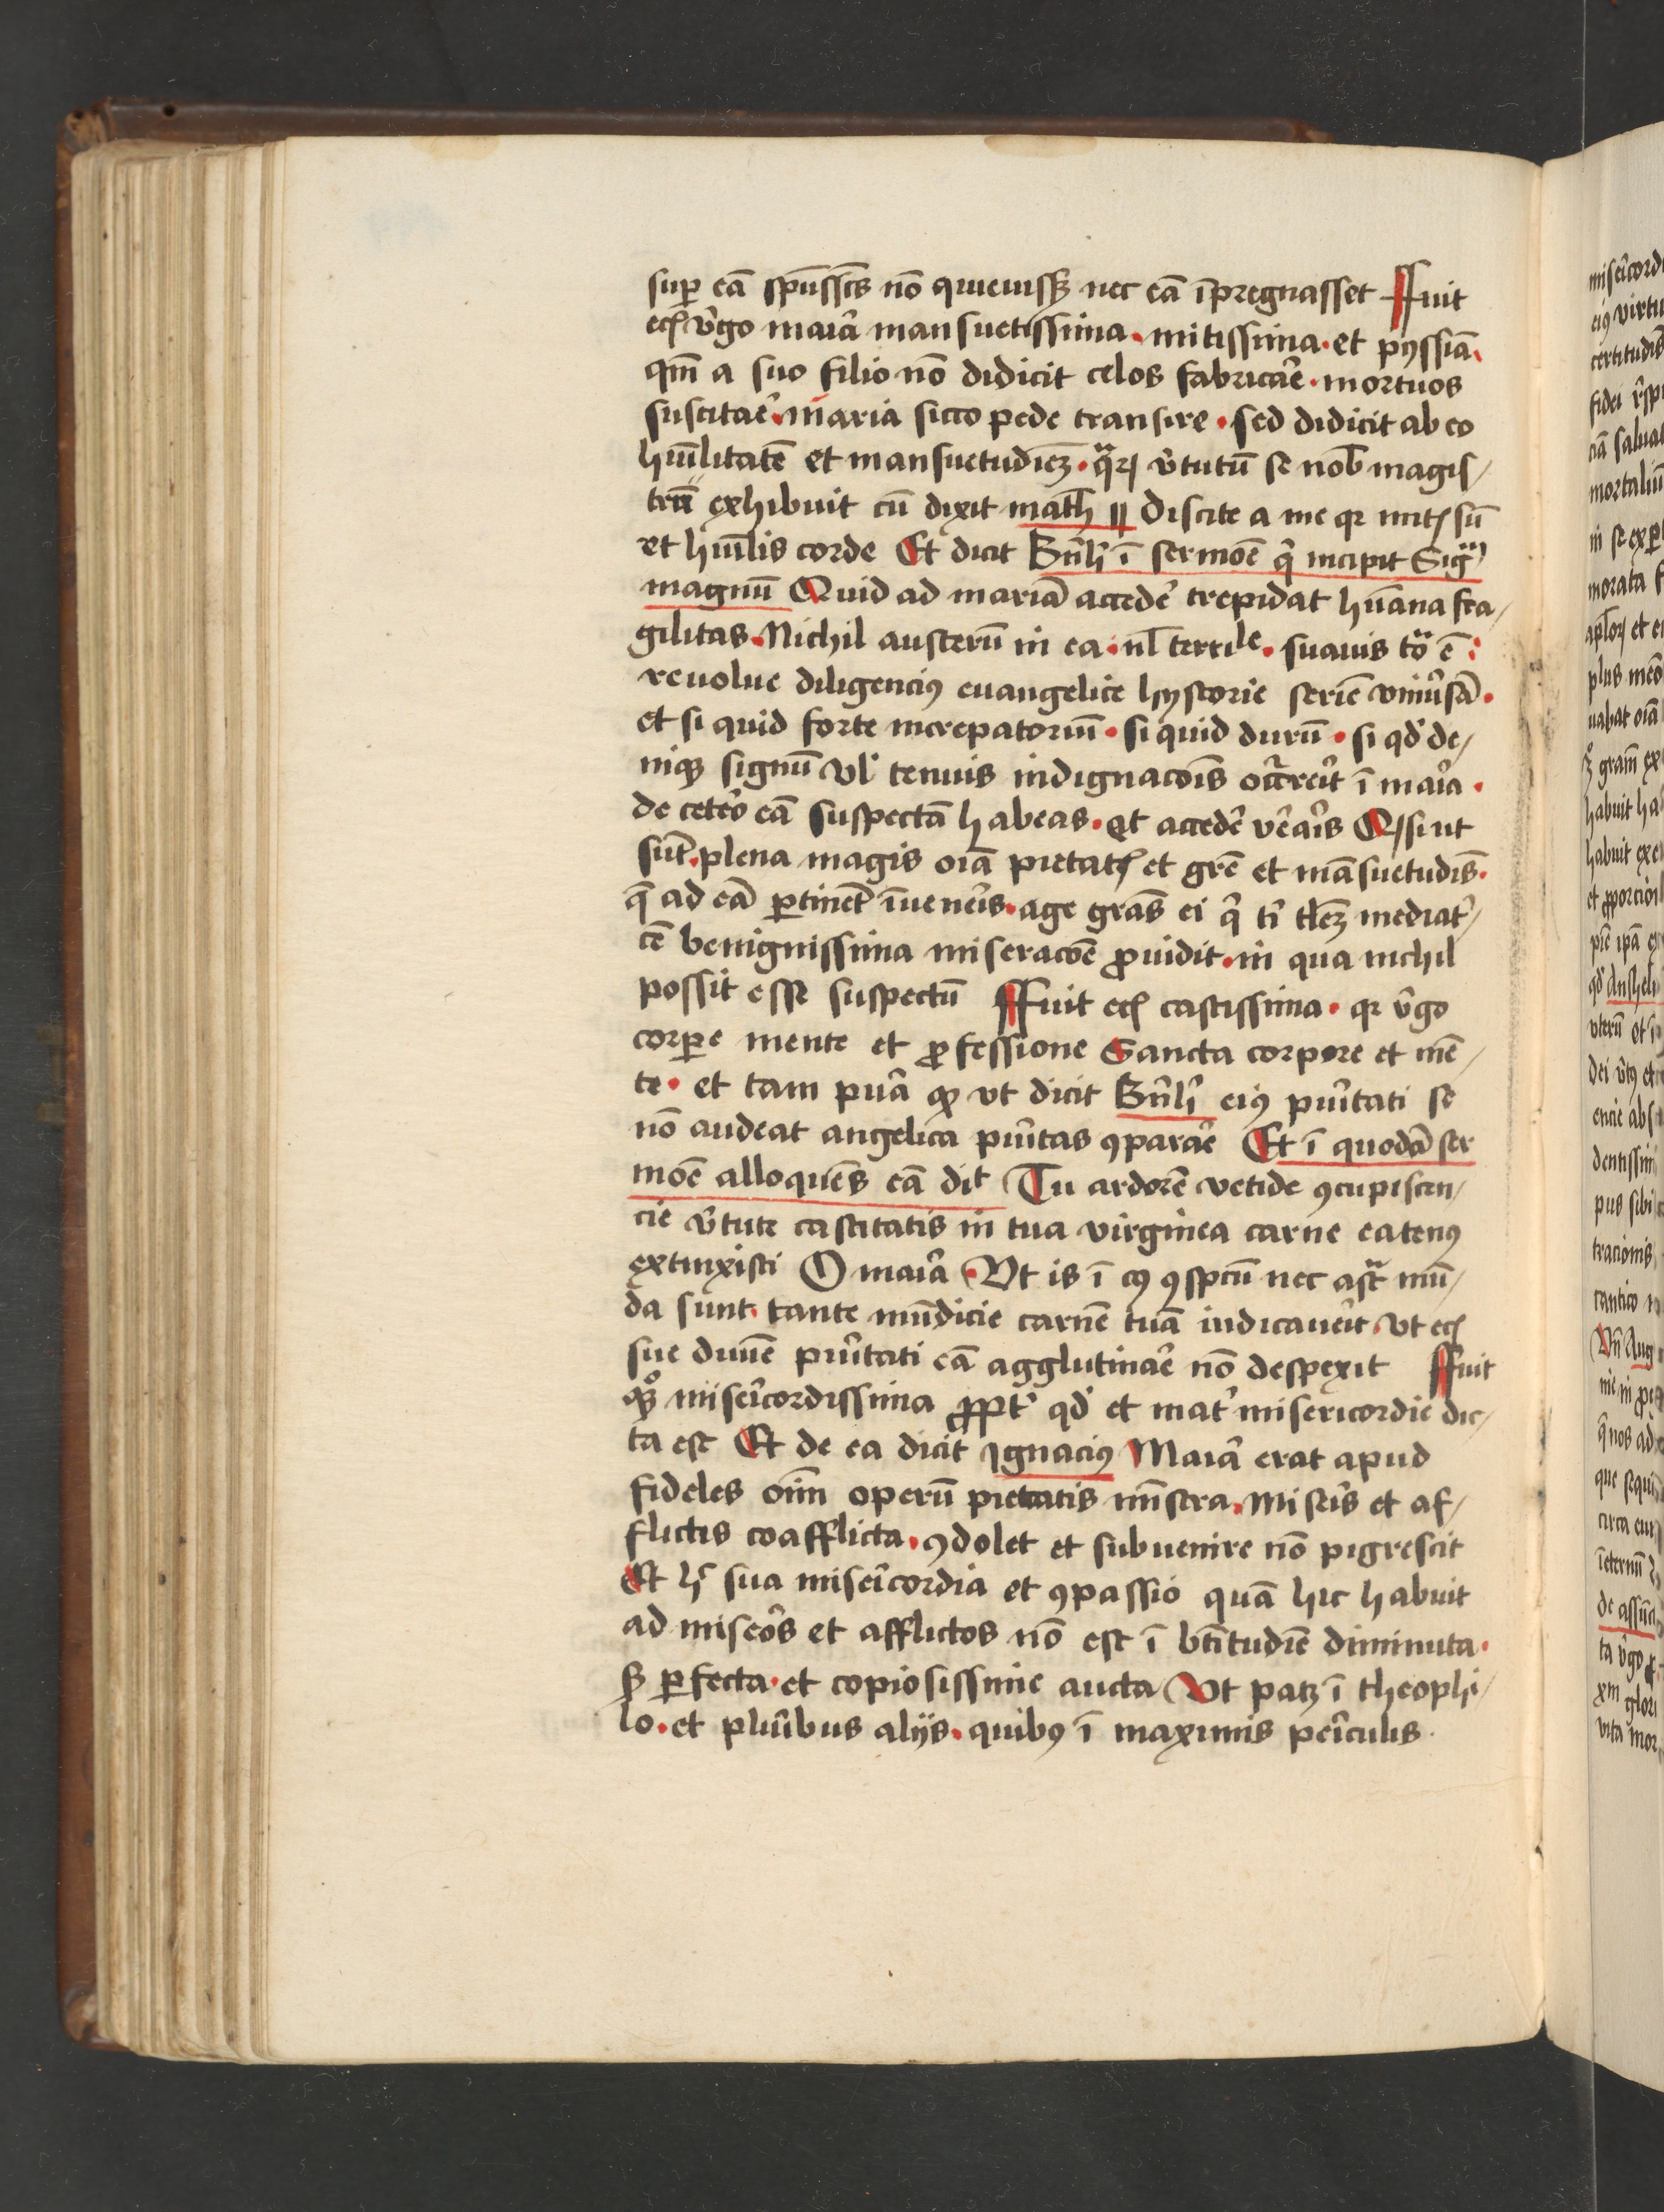 sup eā spūssc̄s nō quieuiss₃ nec eā īpregnasset Ffuit
ec̄ v̄go maīa mansuetissima · mitissima · et pyssīa
qm̄ a suo filio nō didicit celos fabricar̄e · mortuos
suscitar̄e · maria sicco pede transire · sed didicit ab eo
hūilitatē et mansuetudiēz · qᵃrꝝ v̄tutū se nob̄ magis/
trū exhibuit cū dixit math̄ 11 discite a me qꝛ mitꝭ sū
et hūilis corde Et dicit Bn̄h̓ ī sermoē q̄ incipit Sigᵐ
magnū Quid ad mariā acceder̄ trepidat hūana fra/
gilitas · Nichil austerū in ea · nl̄ terrile · suauis toᵃ ē ·
reuolue diligenciꝰ euangelice hystorie seriē vniu̓sā ·
et si quid forte increpatoriū · si quid durū · si qd̓ de/
niqꝫ signū vl̓ tenuis indignacōis occᵃreīt ī maīa ·
de ceteo̓ eā suspectā habeas · et acceder̄ ver̄aīs Qꝙ si ut
sūt · plena magis oīa pietatꝭ et grē et māsuetudis̄ ·
q̄ ad eā ꝑtinēt īuenēis · age grās ei q̄ ti̓ tl̄ez mediat̓/
cē benignissima miseracōe ꝓuidit · in qua nichil
possit esse suspectū Ffuit ec̄ castissima · qꝛ v̄go
corpe mente et ꝓfessione Sancta corpore et mē/
te · et tam puīa ꝙ vt dicit Bn̄h̓ eiꝰ puītati se
nō audeat angelica puītas ꝯparar̄e Et ī quodā ser
moē alloquēs eā di̓t Tu ardorē vetide ꝯcupiscen/
cie v̄tute castitatis in tua virginea carne eatenꝰ
extinxisti O maīa Vt is ī cꝰ ꝯspcū nec astᵃ mū/
da sunt · tante mūdicie carnē tuā iudicaueīt · vt ec̄
sue diuīe puītati eā agglutinar̄e nō despexit Ffuit
qꝫᵒ miseīcordissima ꝓpt̓ qd̓ et mat̓ misericordie dic/
ta est Et de ea dicit Ignaciꝰ Maīa erat apud
fideles oīm operū pietatis mīstra · miseīs et af/
flictis coafflicta · ꝯdolet et subuenire nō pigrescit
Et h̓ sua miseīcordia et ꝯpassio quā hic habuit
ad miseōs et afflictos nō est ī btītudīe diminuta ·
sꝫ ꝑfecta · et copiosissime aucta Vt patꝫ ī theophi/
lo · et pluībus alijs · quibꝰ ī maximis peīculis ·